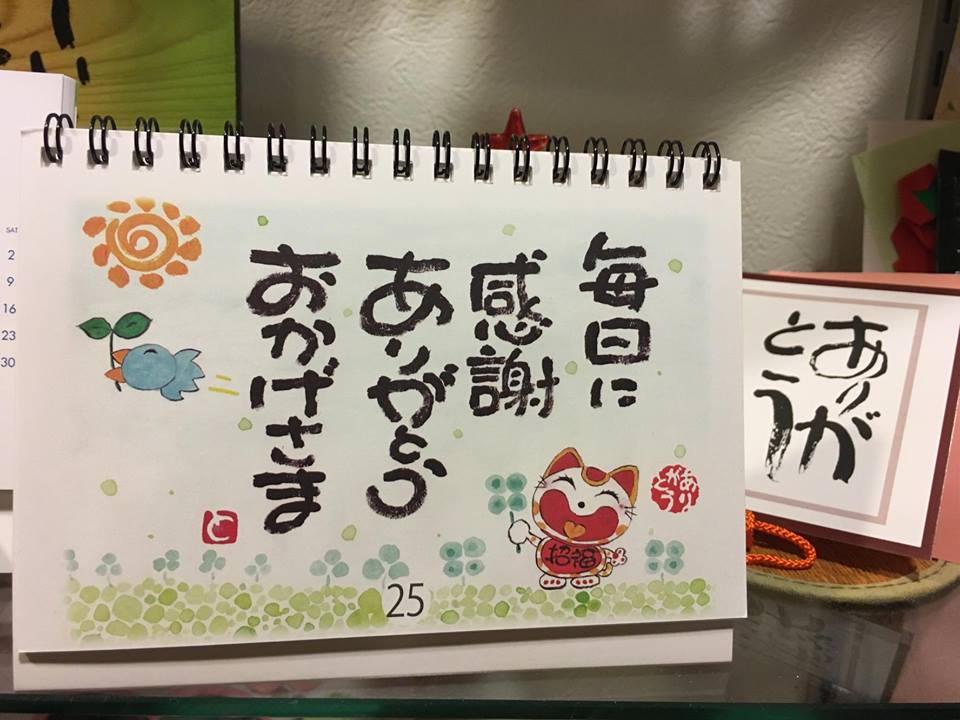 毎日に
感謝
ありがとう
おかげさま
ありがとう
と
招福
25
SAT
2
9
16
23
30
ありが
とう